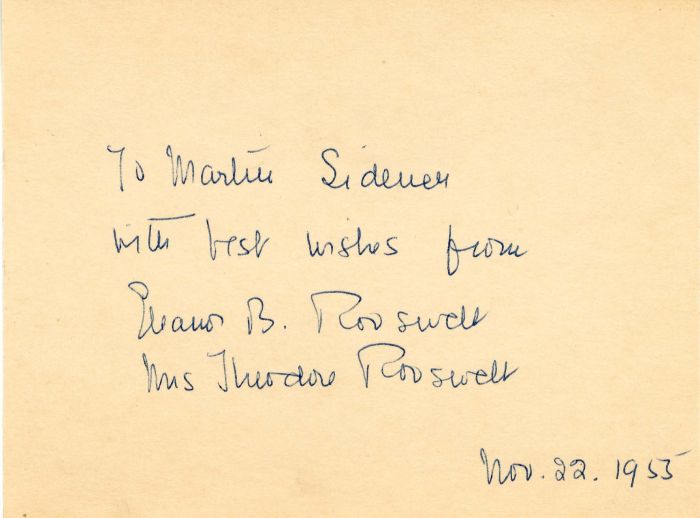 To Martin Sidener
with best wishes from
Eleanor B. Roosevelt
Mrs Theodore Roosevelt
Nov. 22. 1955